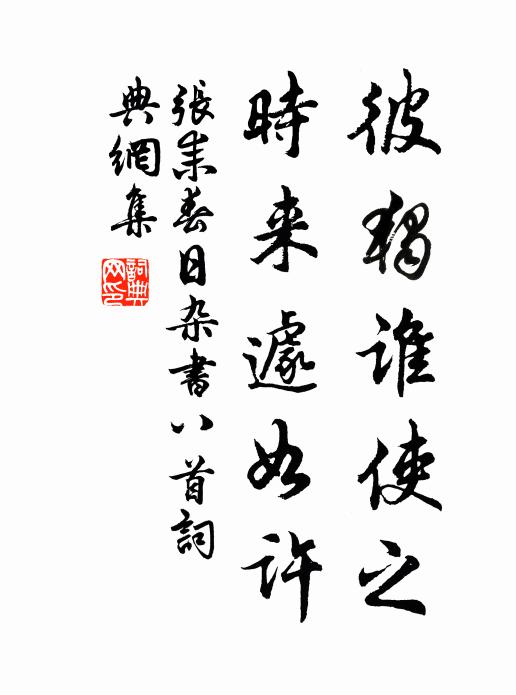 彼獨誰使之
時来遽如許
張耒春日杂書八首詞
典網集
詞典網印